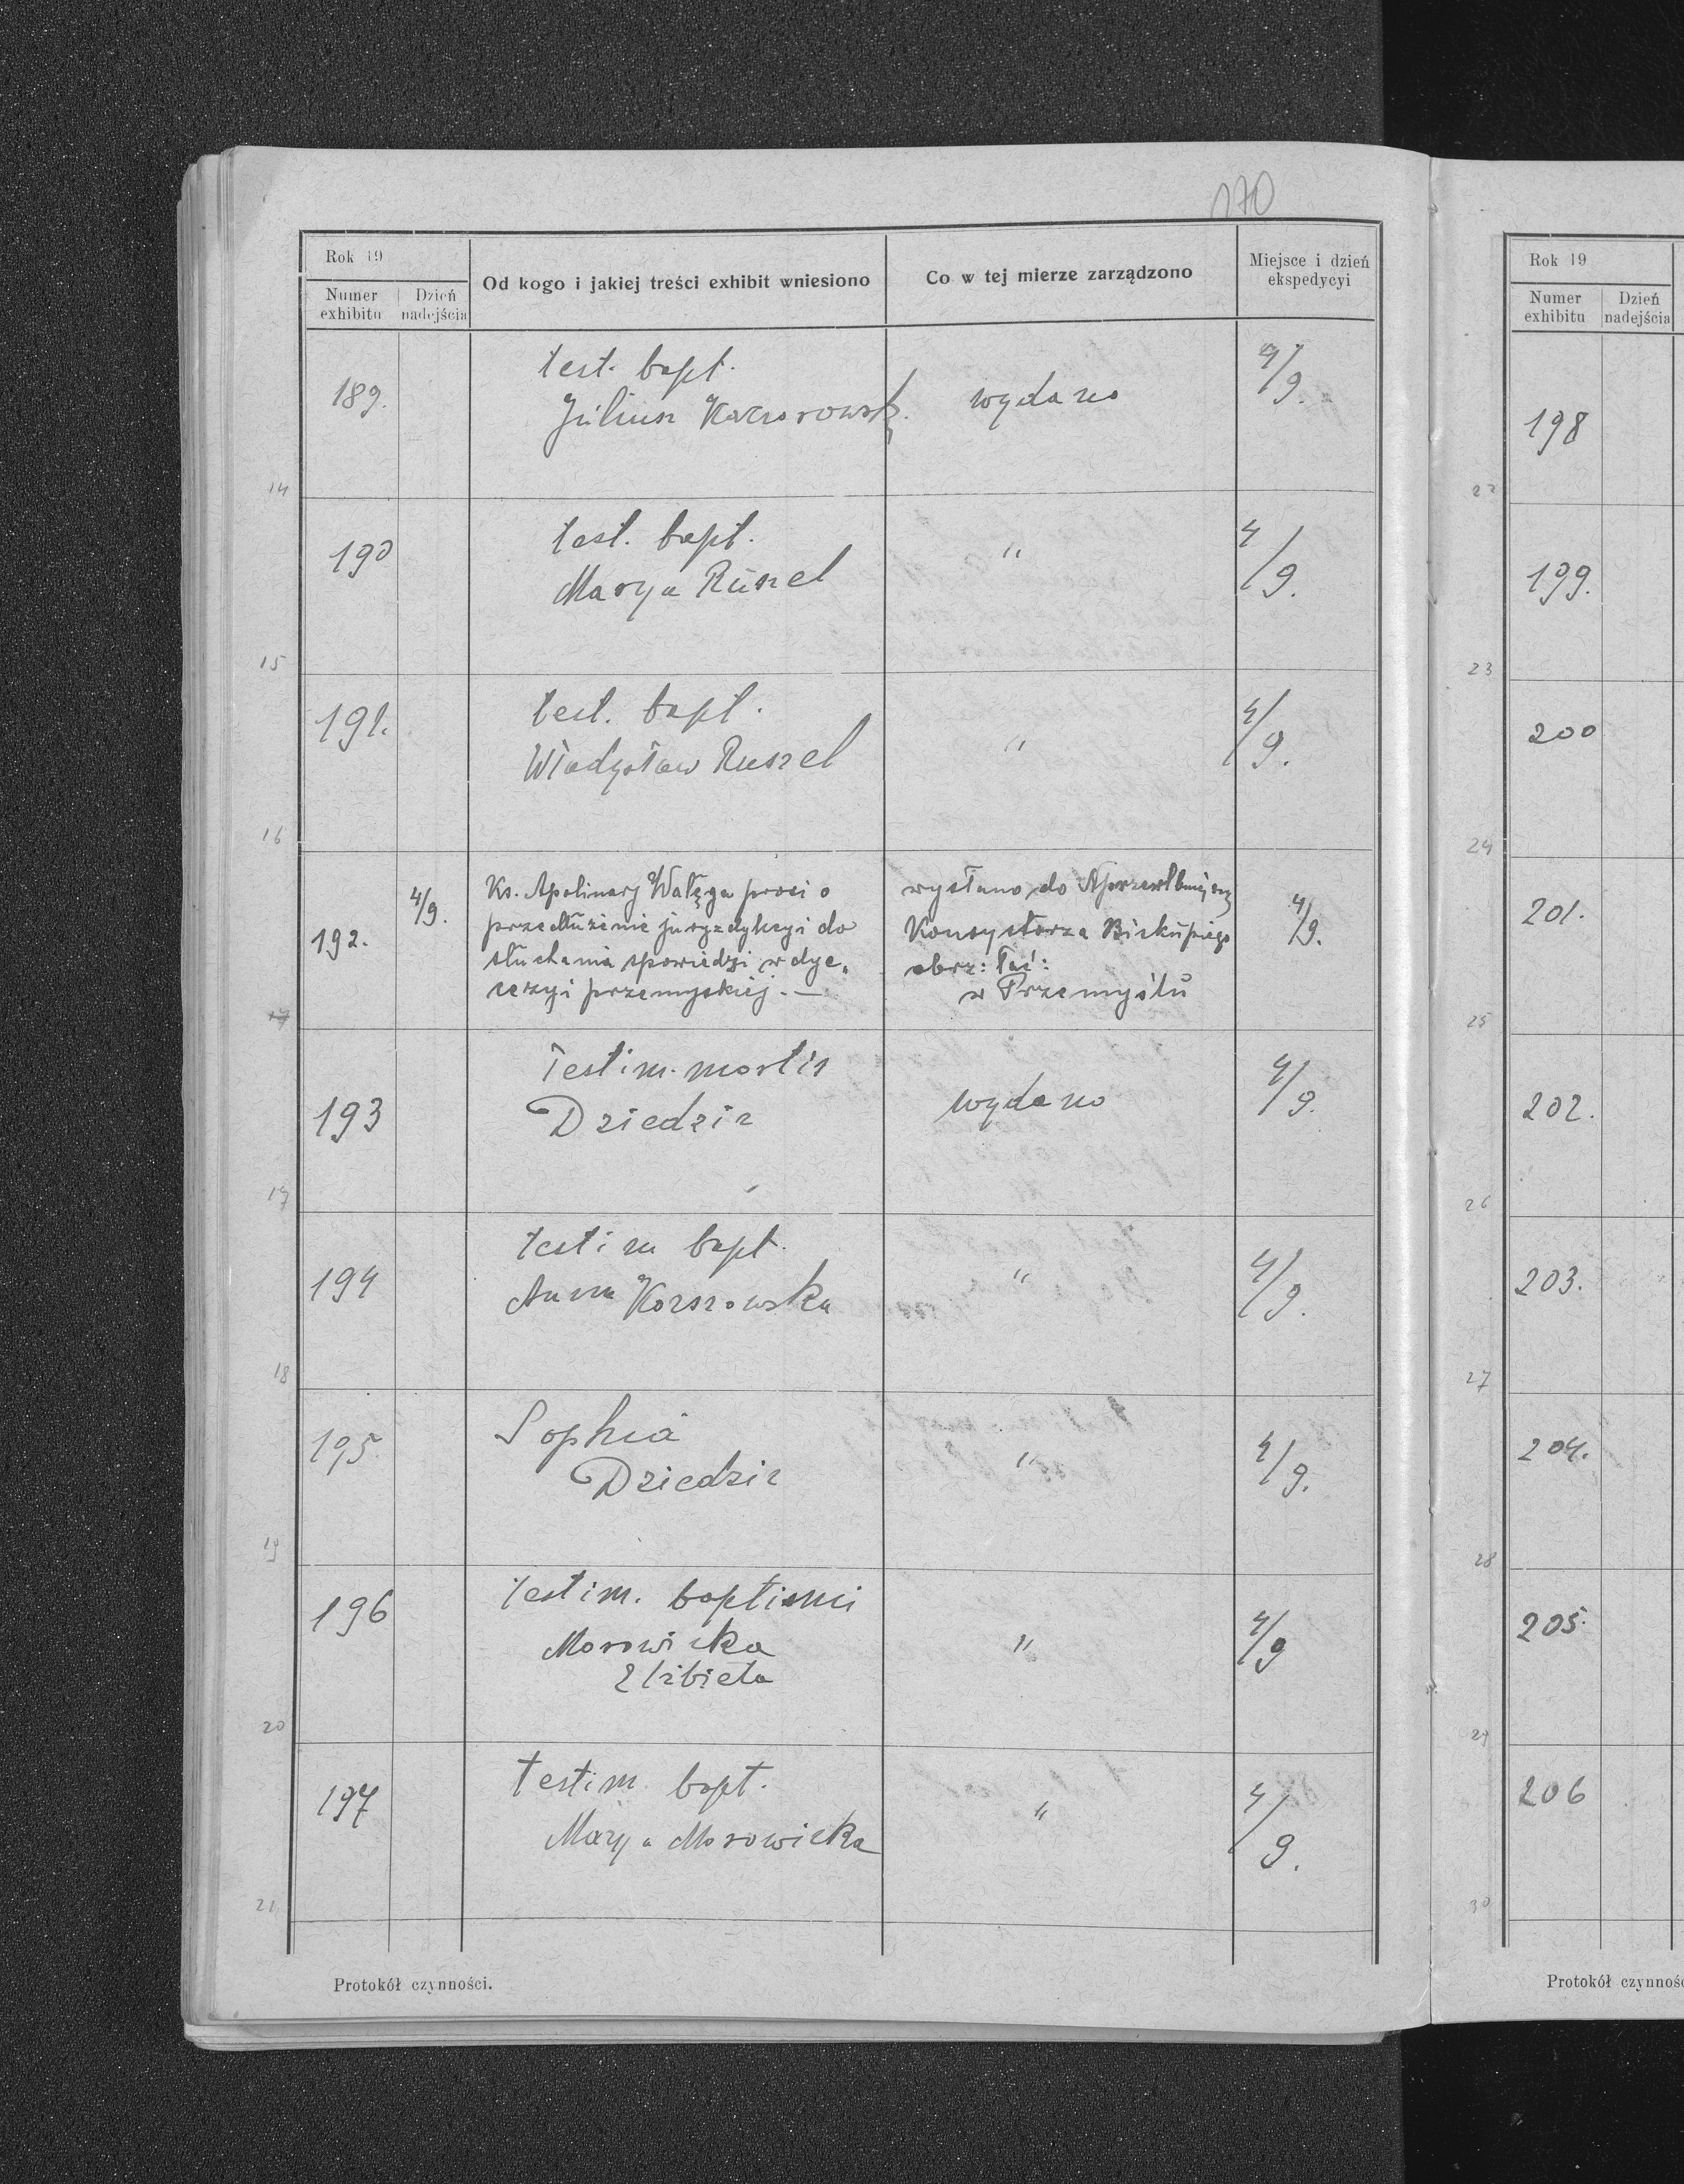 170
Rok 19
Numer exhibitu
Dzień nadejścia
Od kogo i jakiej treści exhibit wniesiono
Co w tej mierze zarządzono
Miejsce i dzień ekspedycyi
189.
test. bapt.
Juliusz
wydano
4/9.
14
190
test. bapt.
Marya Ruszel
"
4/9.
15
191.
test. bapt.
Władysław Ruszel
"
4/9.
16
192.
4/9.
Ks. Apolinary Wałęga prosi o
przedłużenie juryzdykcyi do
słuchania spowiedzi w dye„
cezyi przemyskiej. —
wysłano do
Konsystorza Biskupiego
obrz: łać:
w Przemyślu
4/9.
17
193
Testim. mortis
Dziedzic
wydano
4/9.
17
194
testim bapt.
Anna
"
4/9.
18
195
Sophia
Dziedzic
"
4/9.
19
196
testim. baptismi
Morowicka
Elżbieta
"
4/9
20
197
testim. bapt.
Marya Morowicka
"
4/9.
21
Protokół czynności.
Rok 19
Numer exhibitu
Dzień nadejścia
198
22
199.
23
200
24
201.
25
202.
26
203.
27
204.
28
205.
29
206
30
Protokół